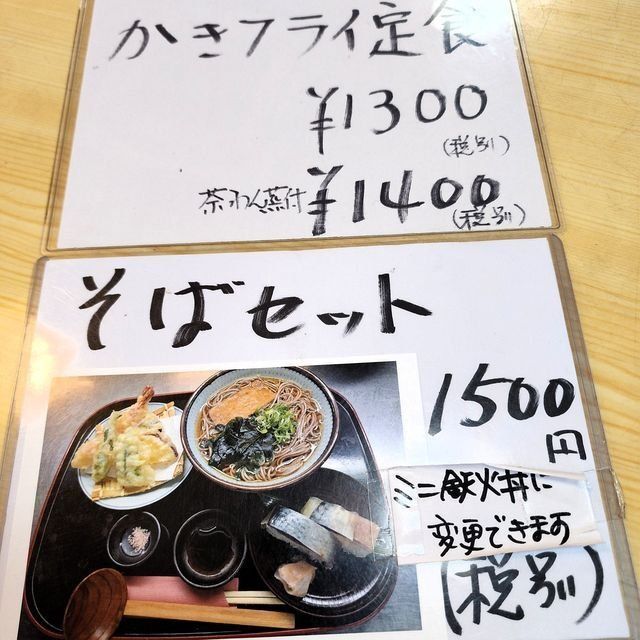 かきフライ定食
¥1300
(税別)
茶わん蒸付 ¥1400
(税別)
そばセット
1500
円
ミニ鉄火丼に
変更できます
(税別)